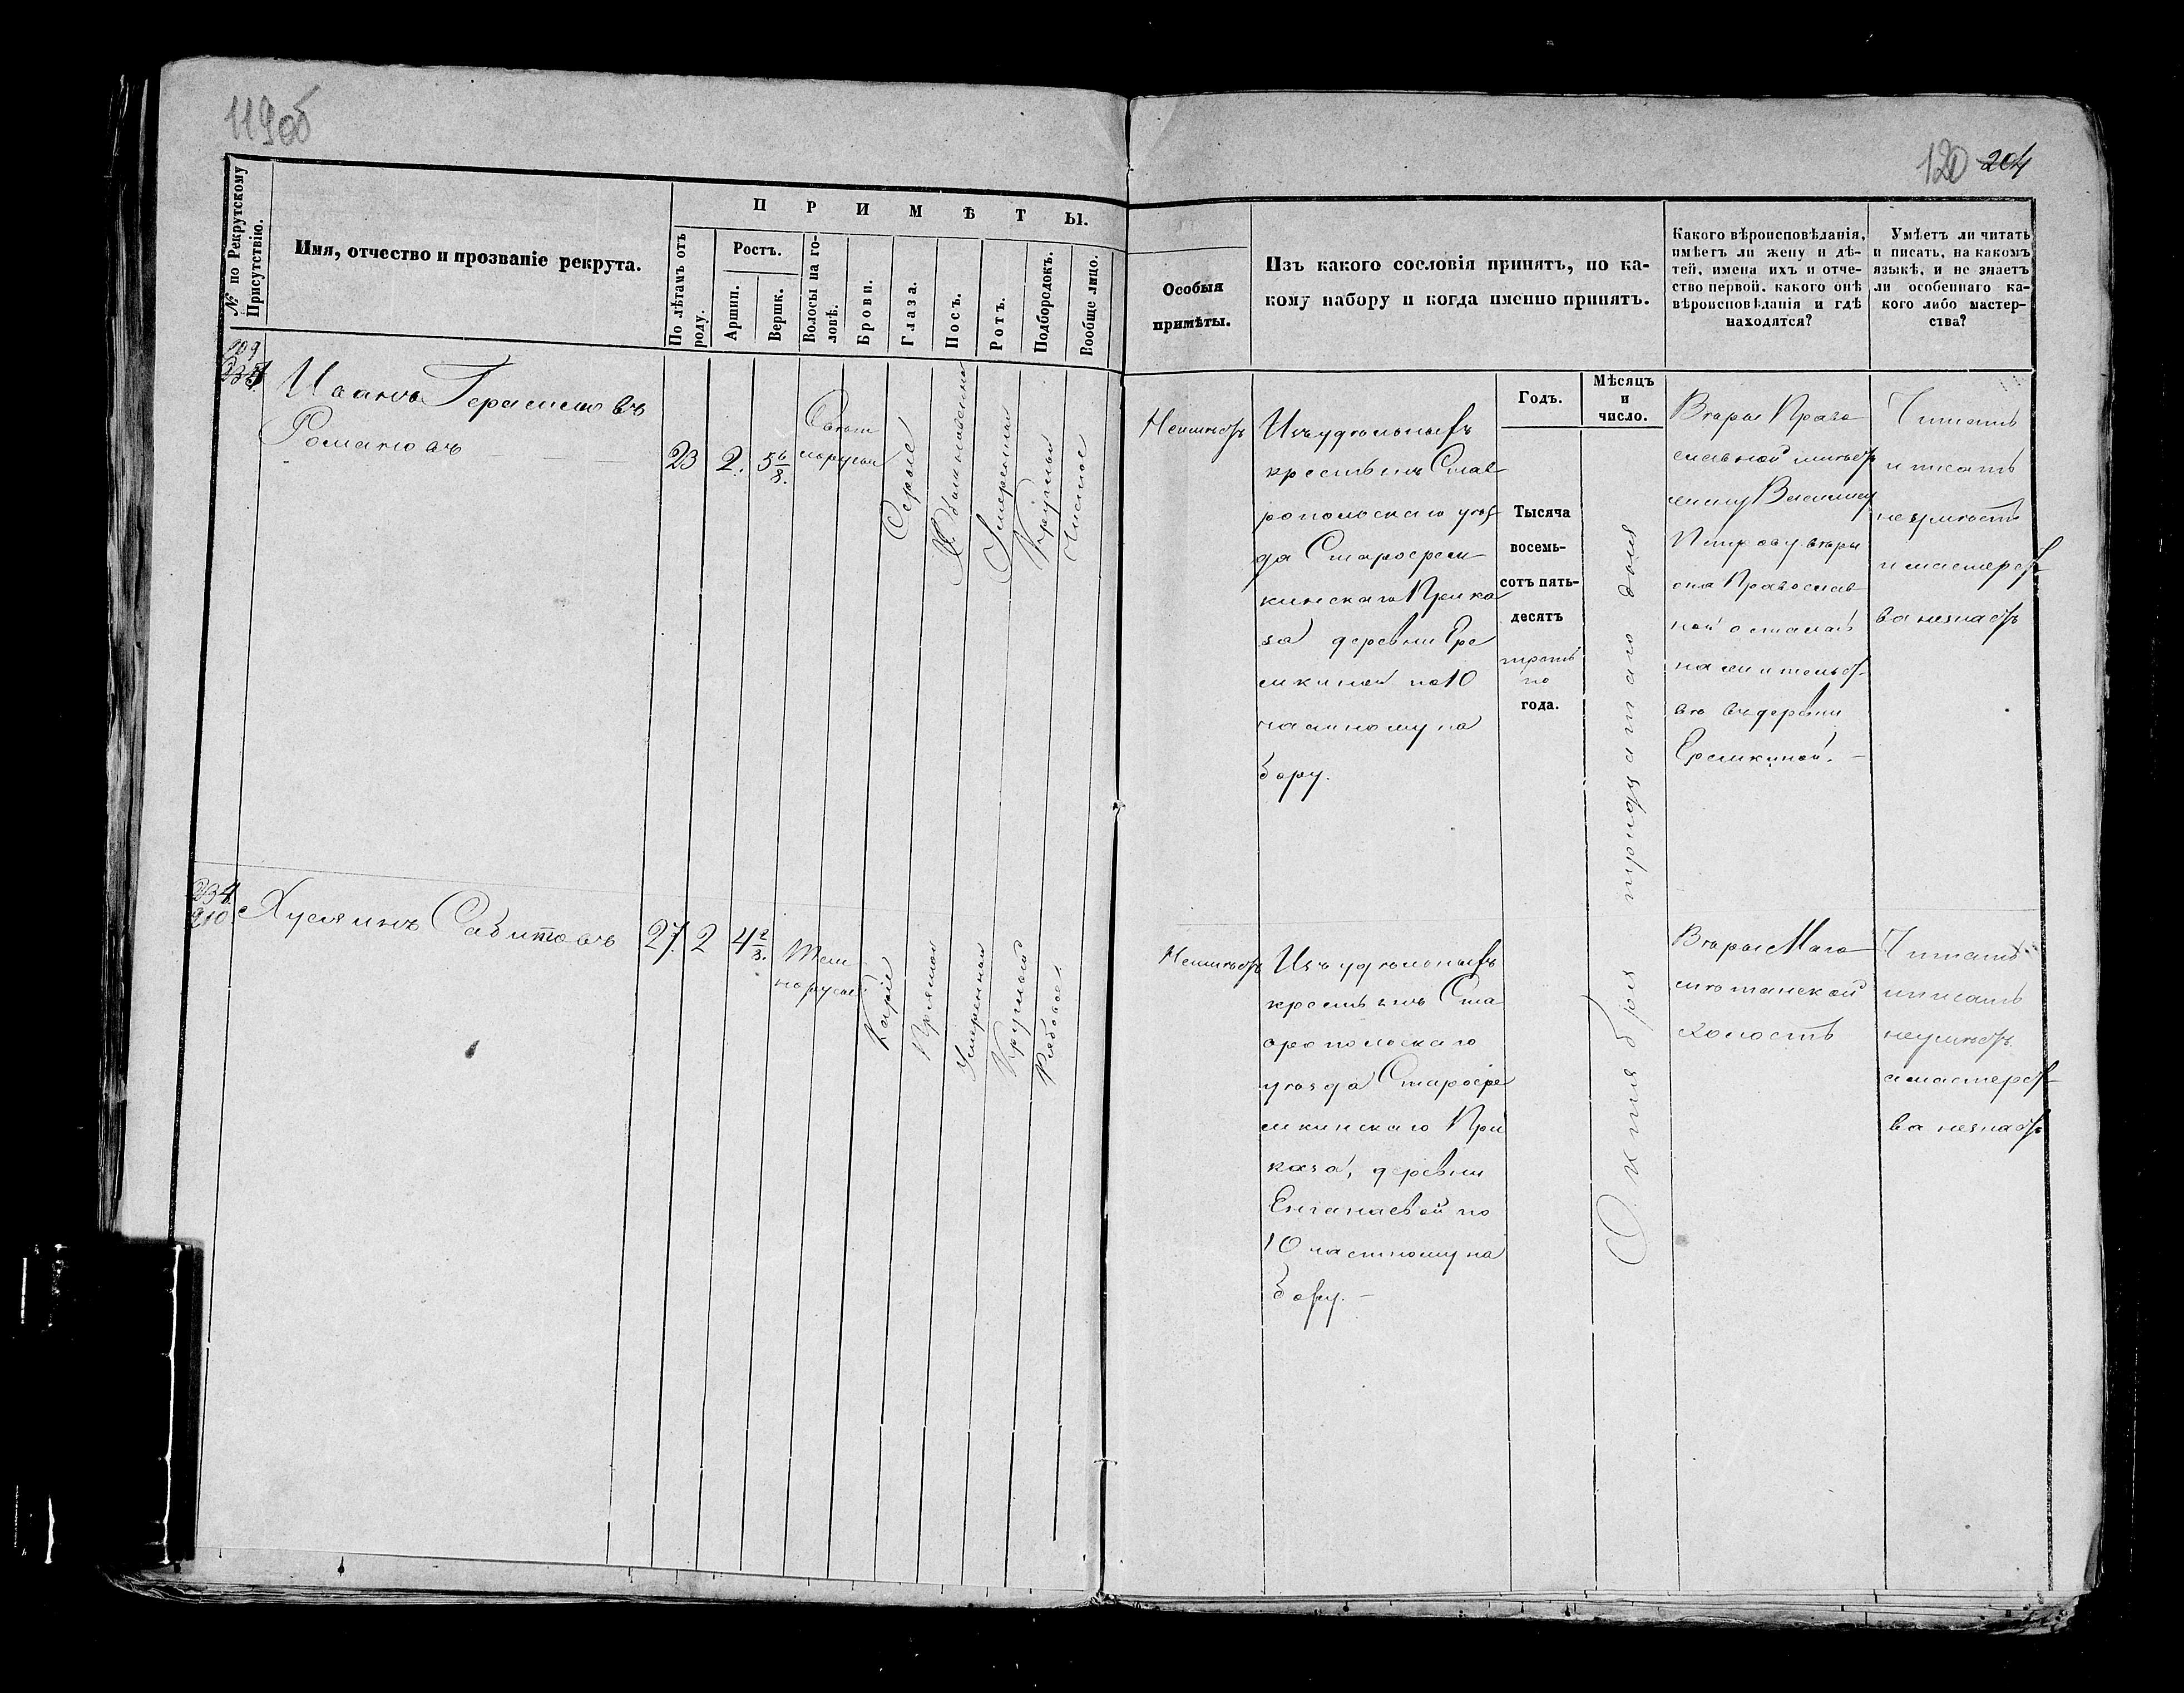 119об
№ по Рекрутскому
Присутствію.
Имя, отчество и прозваніе рекрута.
ПРИМѢТЫ.
По лѣтамъ отъ
роду.
Ростъ.
Аршин.
Вершк.
Волосы на го-
ловѣ.
Брови.
Глаза.
Носъ.
Ротъ.
Подбородокъ.
Вообще лицо.
209
Иванъ Герасимовъ
Романовъ
23
2.
5 6/8.
Свѣтл
лорусыя
Серые
Обыкновенно
Умеренной
Круглой
Чистое
234.
210.
Хуснинъ Сабитовъ
27.
2
4 2/8.
Тем
норусые
Карiе
Прямой
Умеренный
Круглой
Рябовое.
120 204
Особыя
примѣты.
Изъ какого сословія принятъ, по ка-
кому набору и когда именно принятъ.
Какого вѣроисповѣданія,
имѣетъ ли жену и дѣ-
тей, имена ихъ и отче-
ство первой, какого онѣ
вѣроисповѣланія и гдѣ
находятся?
Умѣетъ ли читать
и писать, на какомъ
языкѣ, и не знаетъ
ли особеннаго ка-
кого либо мастер-
ства?
Годъ.
Мѣсяцъ
и
число.
Неимѣетъ
Изъ удѣльныхъ
крестьянъ Став
ропольскаго уѣз
да Староерем
кинскаго Прика
за деревни Ере
мкиной по 10
частному на
бору.
Тысяча
восемь-
сотъ пять-
десятъ
третья
го
года.
Октября тридцатаго дня
Вѣры Право
славной имѣетъ
жену Василису
Петрову вѣры
она Православ
ной осталась
на жительст
вѣ въ деревни
Еремкиной. –
Читать
и писать
неумѣетъ
и мастерст
ва незнаетъ
Неимѣетъ
Изъ удѣльныхъ
крестьянъ Ста
вропольскаго
уѣзда Старовере
мкинскаго При
каза, деревни
Енганаевой по
10 частному на
бору. –
Вѣры Маго
мѣтанской
холостъ
Читать
и писать
неумѣетъ
а мастерст
ва незнаетъ